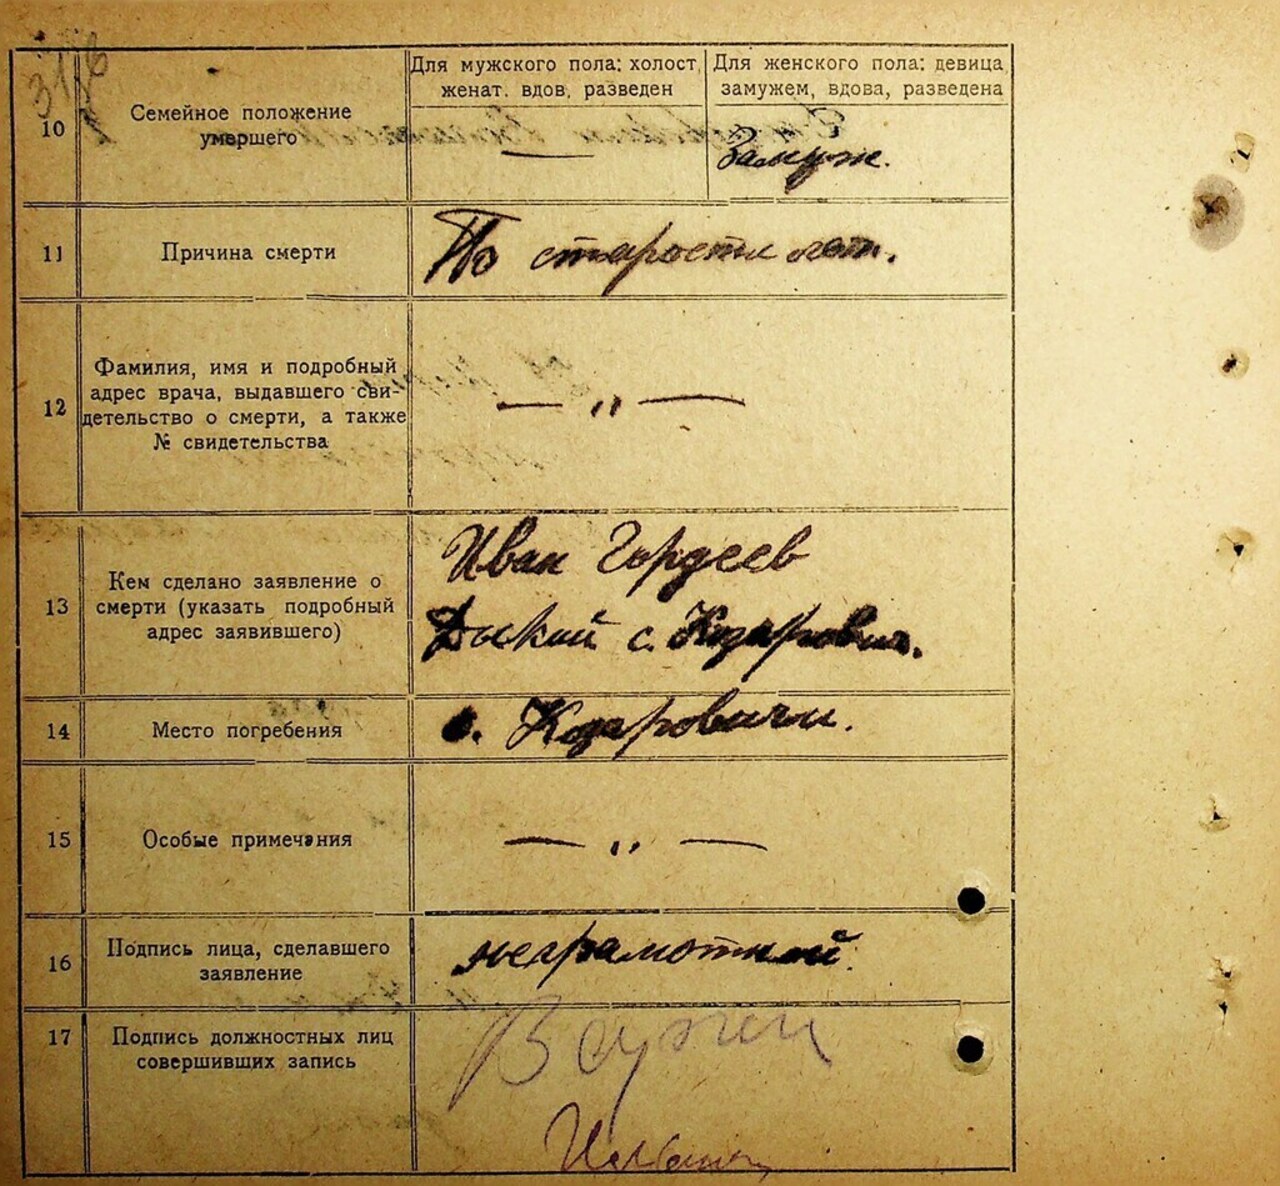 316
10
Семейное положение
умершего
Для мужского пола: холост,
женат, вдов, разведен
Для женского пола: девица,
замужем, вдова, разведена
—
Замуж.
11
Причина смерти
По старости лет.
12
Фамилия, имя и подробный
адрес врача, выдавшего сви-
детельство о смерти, а также
№ свидетельства
— „ —
13
Кем сделано заявление о
смерти (указать подробный
адрес заявившего)
Иван Гордеев
Дыкий с. Козарович.
14
Место погребения
с. Козаровичи.
15
Особые примечания
— „ —
16
Подпись лица, сделавшего
заявление
неграмотный.
17
Подпись должностных лиц
совершивших запись